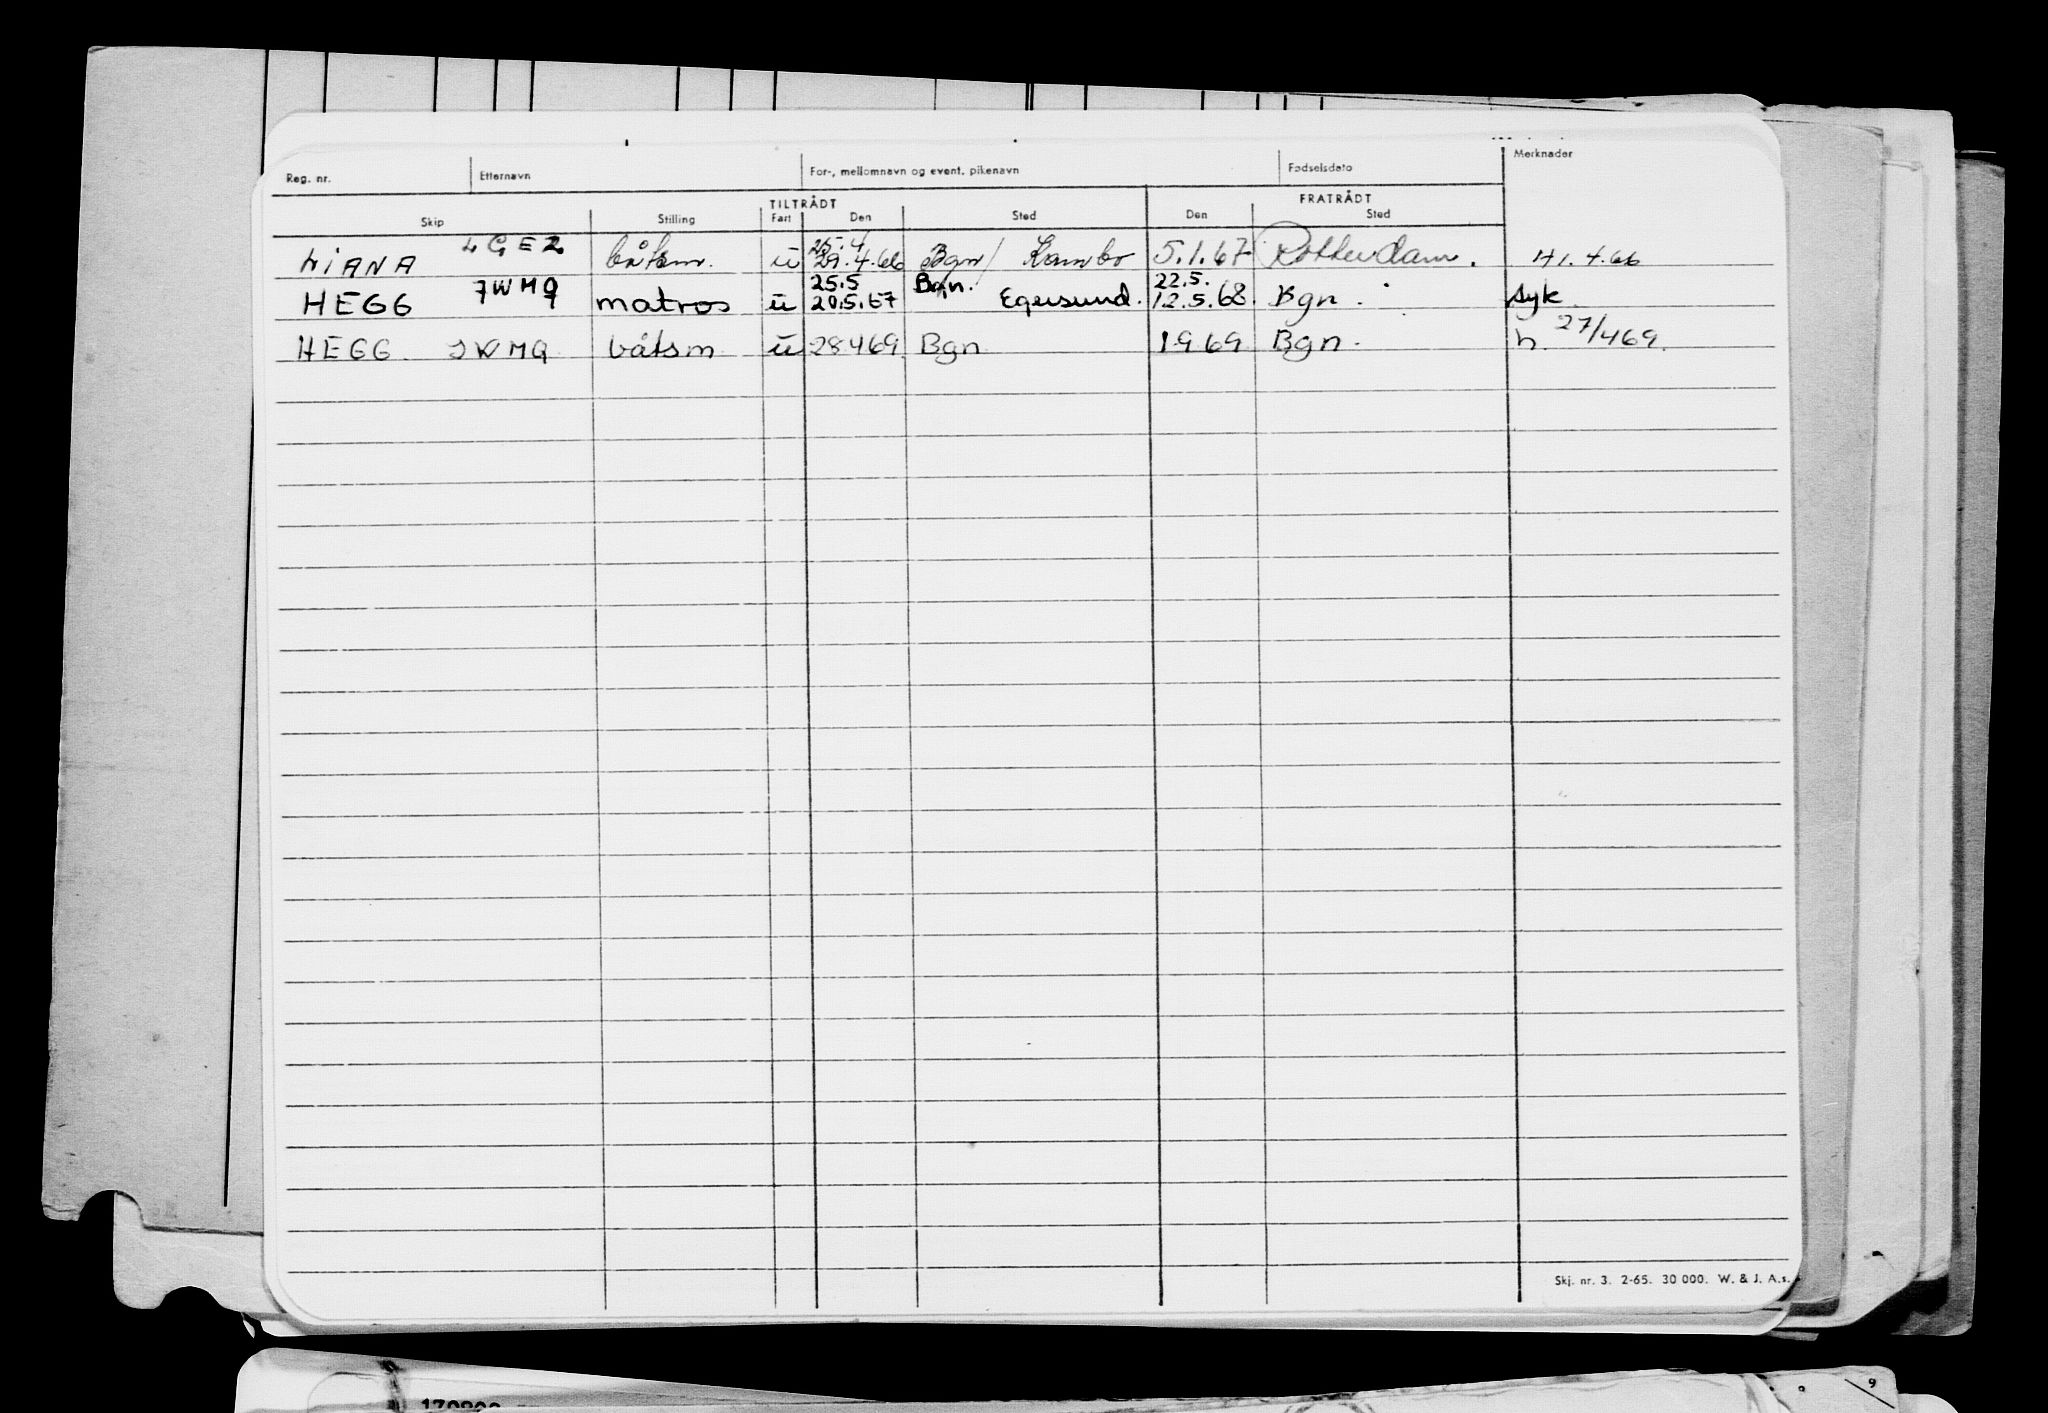 Reg. nr. Etternavn For-, mellomnavn og event. pikenavn Fødselsdato Merknader
TILTRÅDT FRATRÅDT
Skip Stilling Fart Den Sted Den Sted
LIANA LGEZ båtsm. u 25.4 29.4.66 Bgn / Kambo 5.1.67 Rotterdam. H1.4.66
HEGG JWMQ matros u 25.5 20.5.67 Bgn. Egersund. 22.5. 12.5.68. Bgn. Syk
HEGG. JWMQ båtsm u 28469 Bgn 1969 Bgn. h. 27/469.
Skj. nr. 3. 2-65. 30 000. W. & J. A.s.
9